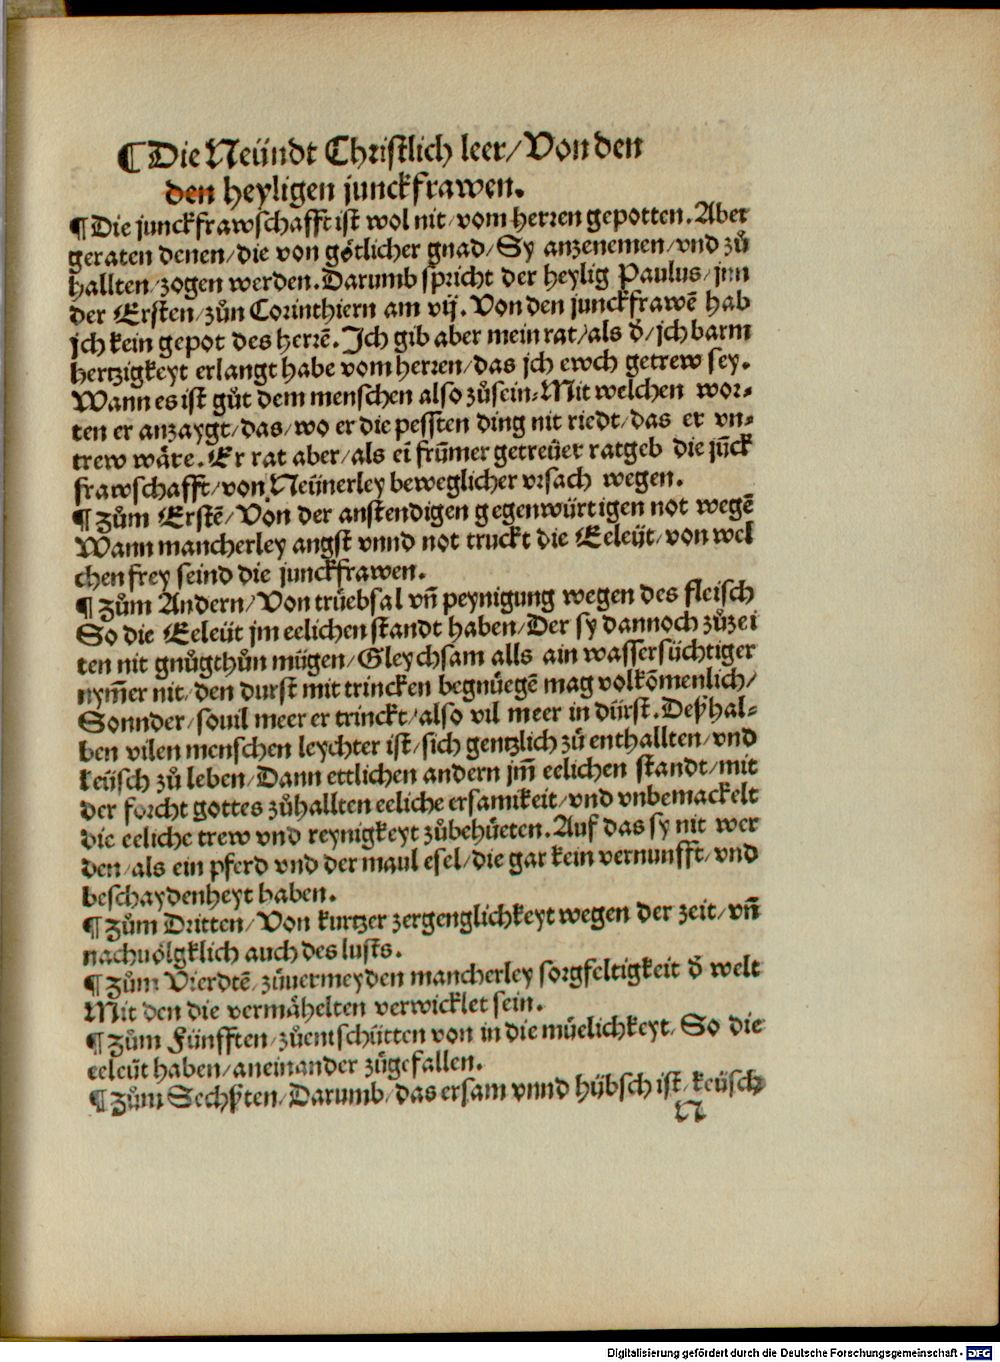 ¶ Die Neündt Christlich leer/ Von den
den heyligen junckfrawen.
¶ Die junckfrawschafft ist wol nit/ vom herren gepotten. Aber
geraten denen/ die von götlicher gnad/ Sy anzenemen/ vnd zů
hallten/ zogen werden. Darumb spricht der heylig Paulus/ jnn
der Ersten/ zůn Corinthiern am vij. Von den junckfrawē hab
jch kein gepot des herrē. Ich gib aber mein rat/ als d̄/ jch barm
hertzigkeyt erlangt habe vom herren/ das jch ewch getrew sey.
Wann es ist gůt dem menschen also zůsein: Mit welchen wor⸗
ten er anzaygt/ das/ wo er die pessten ding nit riedt/ das er vn⸗
trew wäre. Er rat aber/ als eī frūmer getreüer ratgeb die jūck
frawschafft/ von Neünerley beweglicher vrsach wegen.
¶ Zům Erstē/ Von der anstendigen gegenwürtigen not wegē
Wann mancherley angst vnnd not truckt die Eeleüt/ von wel
chen frey seind die junckfrawen.
¶ Zům Andern/ Von trüebsal vn̄ peynigung wegen des fleisch
So die Eeleüt jm eelichen standt haben/ Der sy dannoch zůzei
ten nit gnůgthůn mügen/ Gleychsam alls ain wassersüchtiger
nym̄er nit/ den durst mit trincken begnüegē mag volkōmenlich/
Sonnder/ souil meer er trinckt/ also vil meer in dürst. Deßhal⸗
ben vilen menschen leychter ist/ sich gentzlich zů enthallten/ vnd
keüsch zů leben/ Dann ettlichen andern jm̄ eelichen standt/ mit
der forcht gottes zůhallten eeliche ersamikeit/ vnd vnbemackelt
die eeliche trew vnd reynigkeyt zůbehüeten. Auf das sy nit wer
den/ als ein pferd vnd der maul esel/ die gar kein vernunfft/ vnd
beschaydenheyt haben.
¶ Zům Dritten/ Von kurtzer zergenglichkeyt wegen der zeit/ vn̄
nachuölgklich auch des lusts.
¶ Zům Vierdtē/ zůuermeyden mancherley sorgfeltigkeit d̄ welt
Mit den die vermähelten verwicklet sein.
¶ Zům Fünfften/ zůentschütten von in die müelichkeyt/ So die
eeleüt haben/ aneinander zůgefallen.
¶ Zům Sechßten/ Darumb/ das ersam vnnd hübsch ist/ keüsch
N
Digitalisierung gefördert durch die Deutsche Forschungsgemeinschaft - DFG